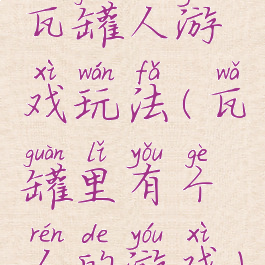 瓦罐人游
xì wán fǎ wǎ
戏玩法(瓦
guàn lǐ yǒu gè
罐里有个
rén de yóu xì
人的游戏)